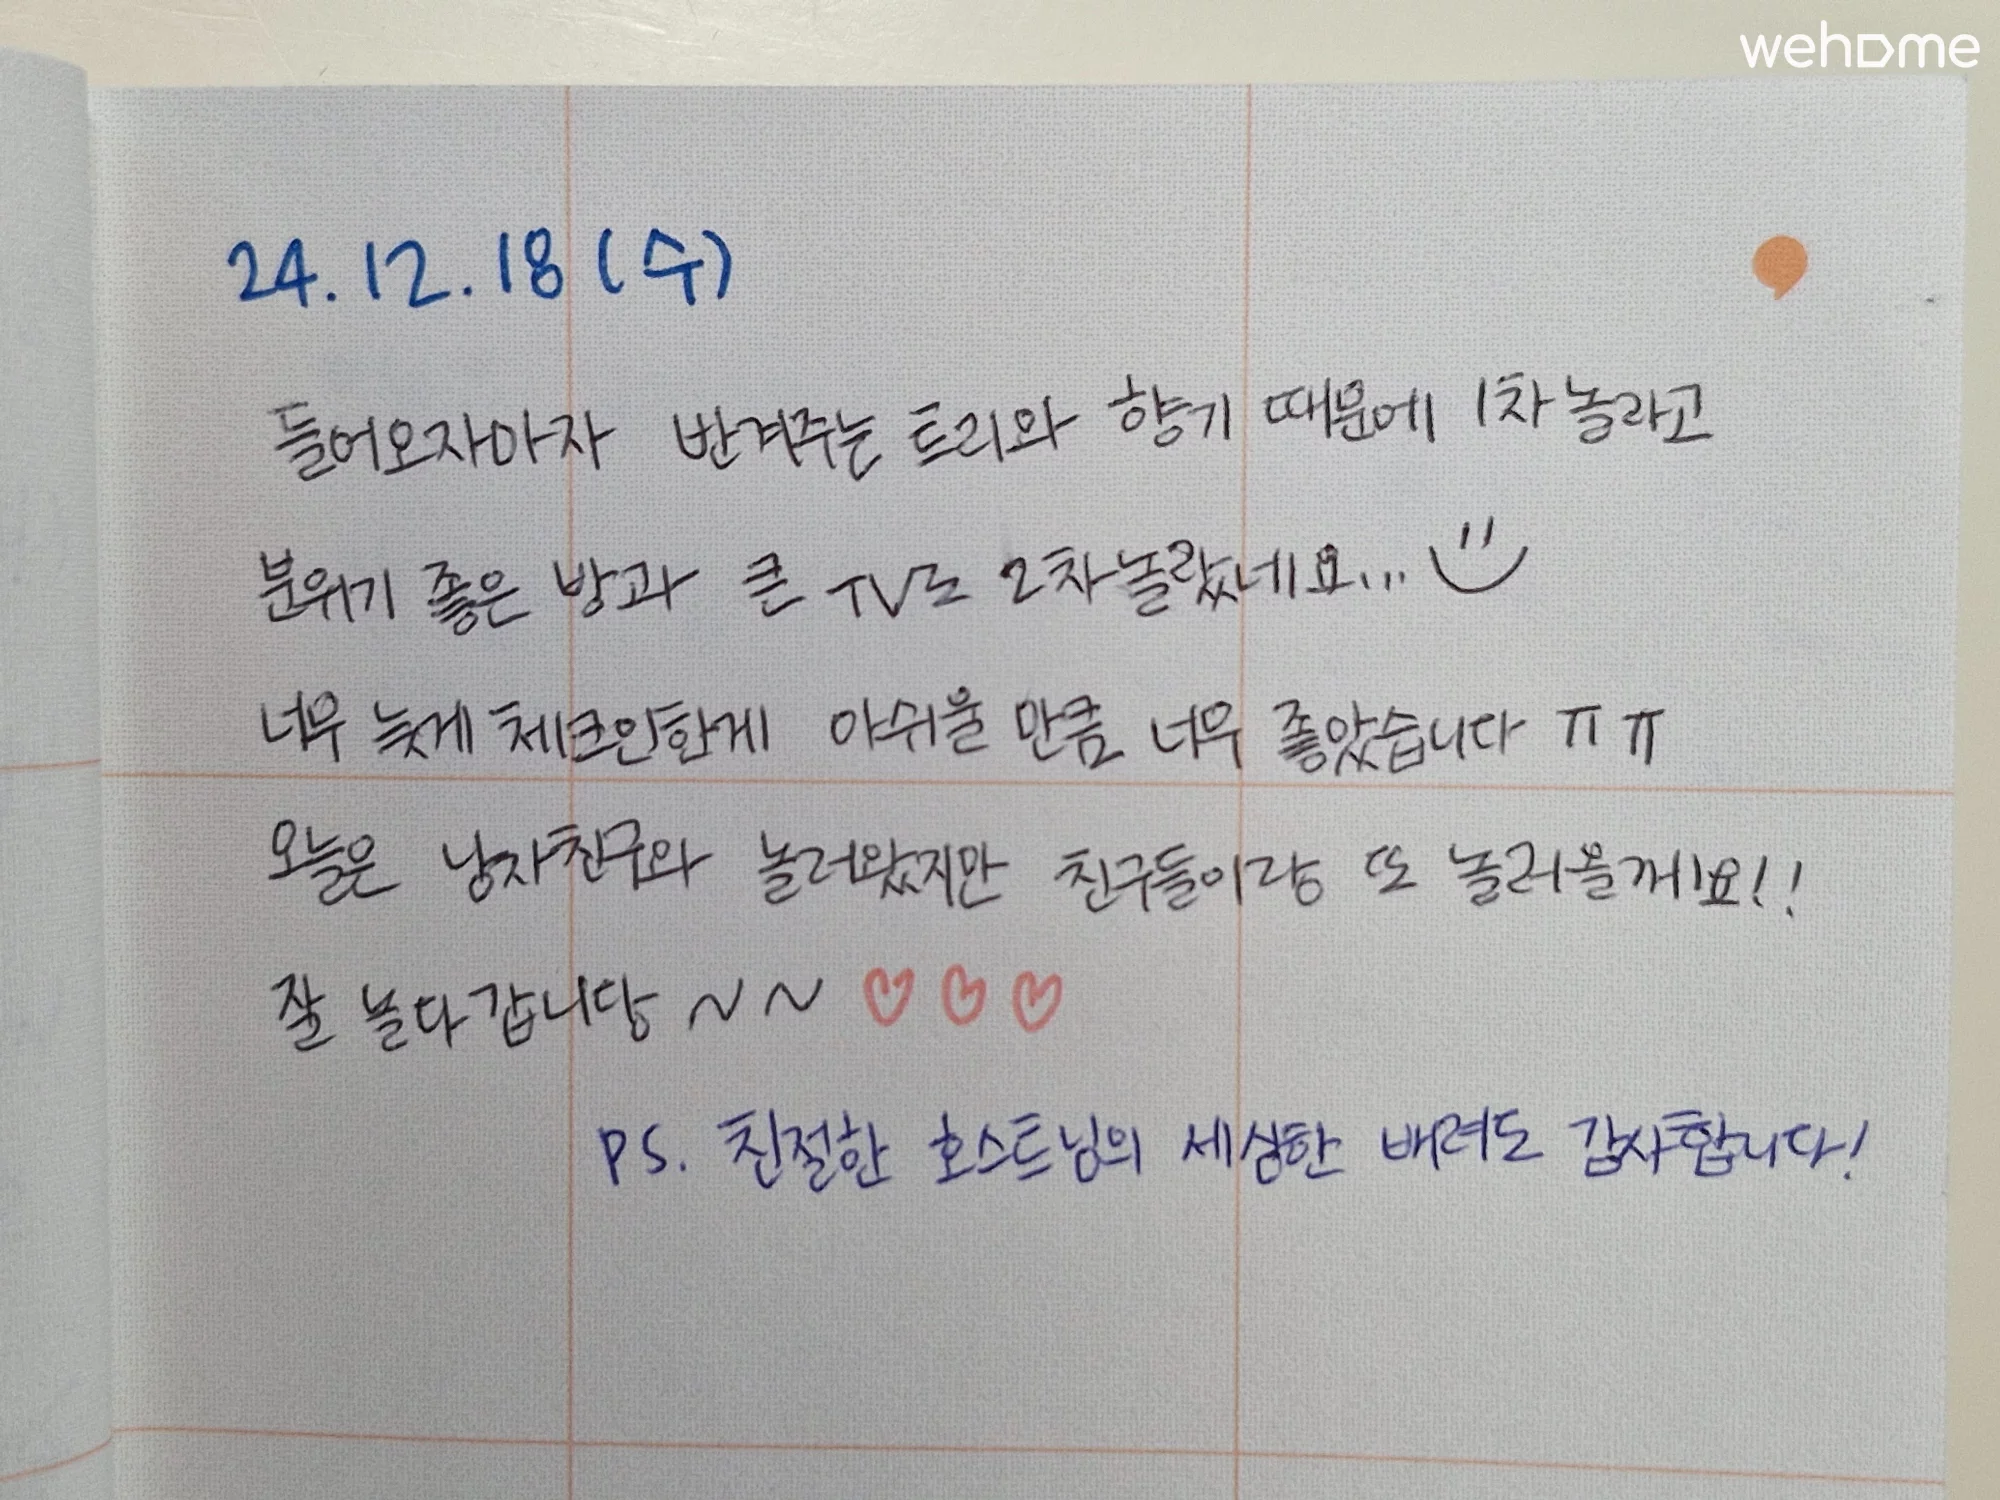 wehome
24.12.18(수)
들어오자마자 반겨주는 트리와 향기 때문에 1차놀라고
분위기 좋은 방과 큰 TV로 2차놀랐네요...
너무 늦게 체크인한게 아쉬울 만큼 너무 좋았습니다 ㅠㅠ
오늘은 남자친구와 놀러왔지만 친구들이랑 또 놀러올께요!!
잘 놀다갑니당 ~~ ♡♡♡
PS. 친절한 호스트님의 세심한 배려도 감사합니다!